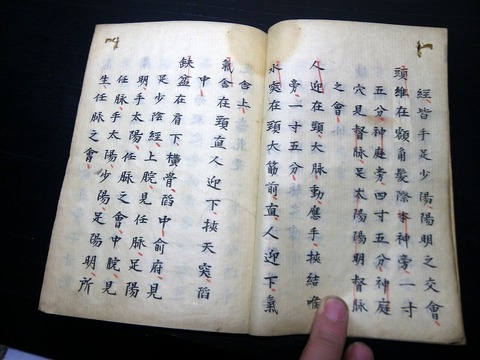 經皆手足少陽陽明之交會
頭維在額角髮際本神旁一寸
五分神庭旁四寸五分神庭
穴見督脈足太陽陽明督脈
之會
人迎在頸大脈動應手挾結喉
旁一寸五分
水突在頸大筋前直人迎下氣
舍上
氣舍在頸直人迎下挾天突陷
中
缺盆在肩下橫骨陷中俞府見
足少陰經上脘見任脈足陽
明手太陽任脈之會中脘見
任脈手太陽少陽足陽明所
生任脈之會